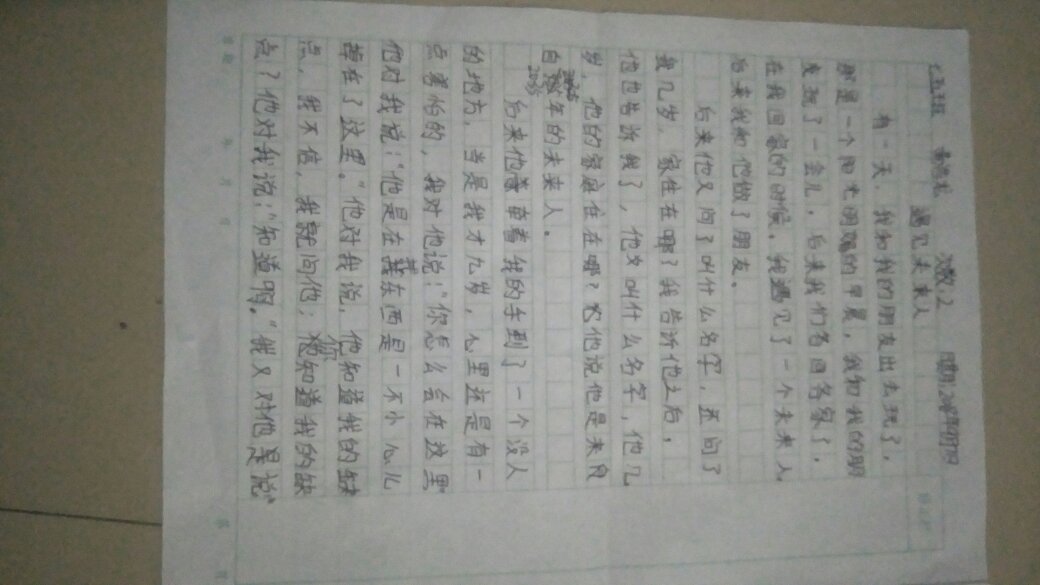 七五班 次数:2
遇见未来人
有一天，我和我的朋友出去玩了，
那是一个阳光明媚的早晨，我和我的朋
友玩了一会儿，后来我们各回各家了，
在我回家的时候，我遇见了一个未来人，
后来我和他做了朋友。
后来他又问了叫什么名字，还问了
我几岁，家住在哪？我告诉他之后，
他也告诉我了，他叫什么名字，他几
岁，他的家庭住在哪？他说他是来自
自年的未来人。
后来他牵着我的手到了一个没人
的地方，当是我才九岁，心里还是有一
点害怕的，我对他说：“你怎么会在这里
他对我说：“他是在东西是一不小心儿
掉在了这里。”他对我说，他知道我的缺
点，我不信，我就问他；你知道我的缺
点？他对我说：“知道啊。”我又对他是说“